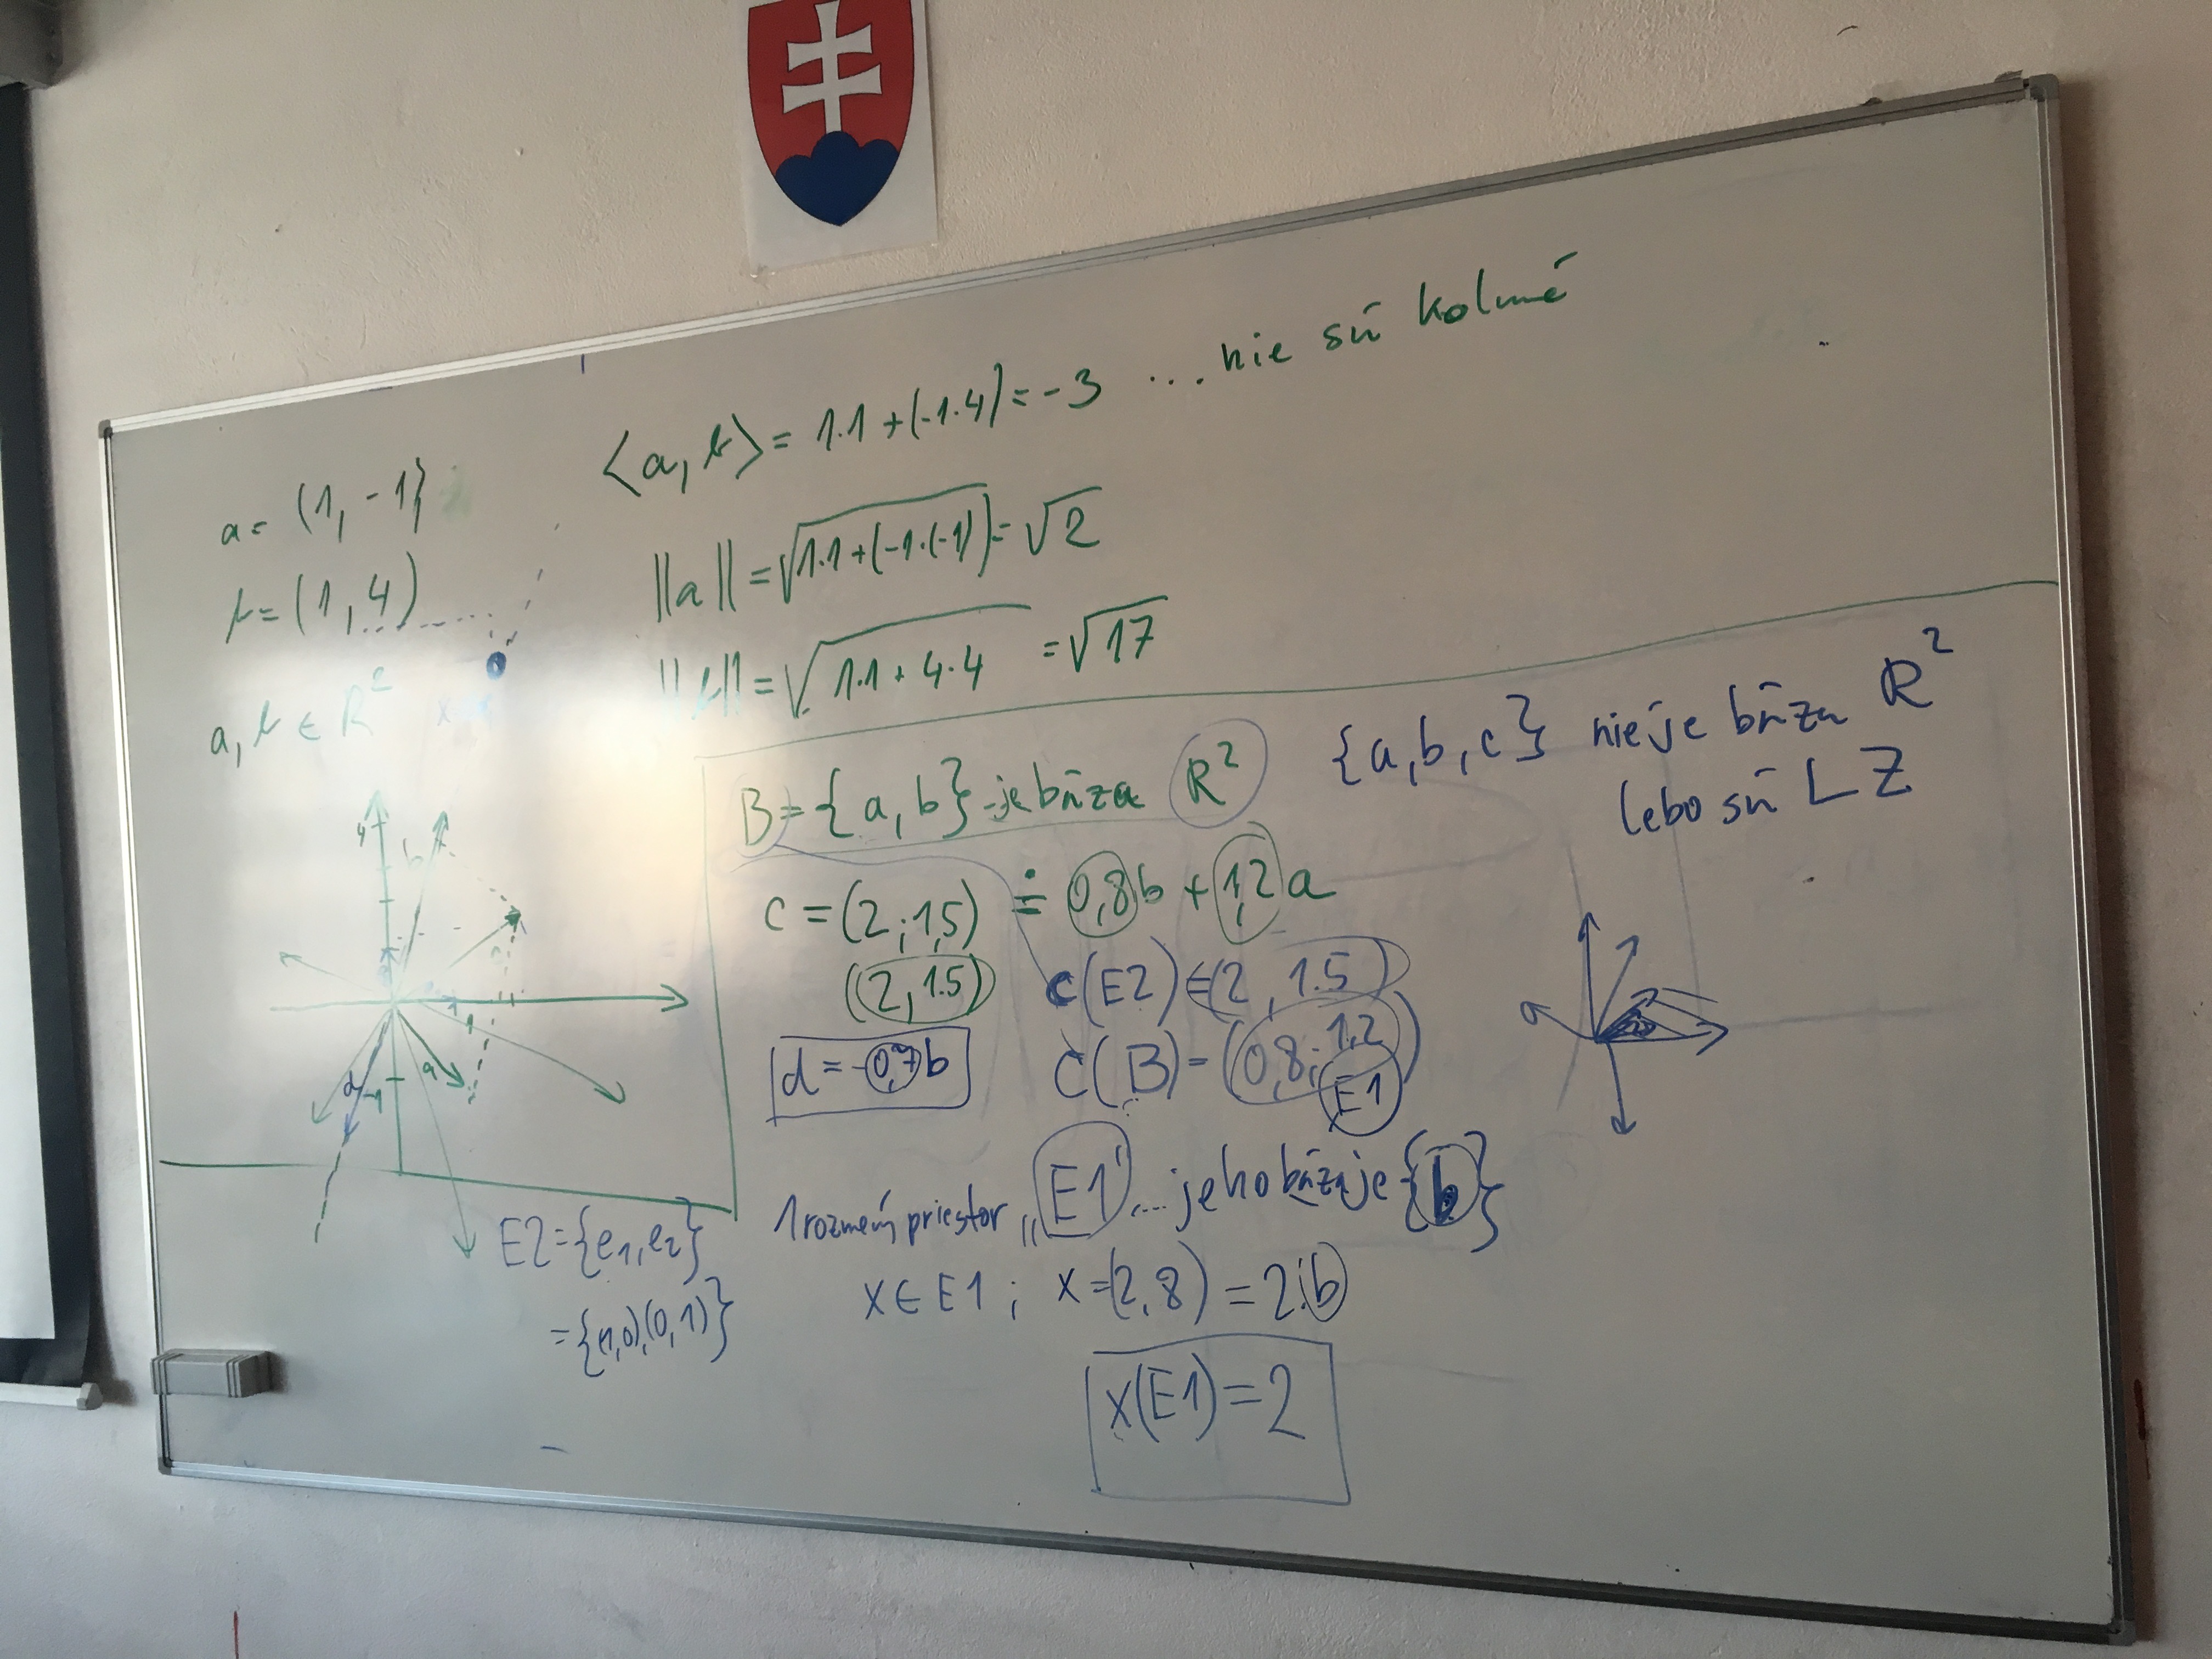 a = (1, -1)
b = (1, 4)
a, b ∈ R²
<a, b> = 1·1 + (-1·4) = -3 ... nie sú kolmé
||a|| = √1·1 + (-1·(-1)) = √2
||b|| = √1·1 + 4·4 = √17
4
b
c
1
a
d
-1
B = {a, b} - je báza R²
{a, b, c} nie je báza R²
lebo sú LZ
c = (2; 1,5) ≐ 0,8b + 1,2a
(2, 1.5)
c(E2) = (2, 1.5)
d = -0,7b
c(B) = (0,8; 1,2)
E1
1 rozmerný priestor „E1" ... jeho báza je {b}
E2 = {e₁, e₂}
= {(1,0),(0,1)}
x ∈ E1 ; x = (2, 8) = 2·b
x(E1) = 2